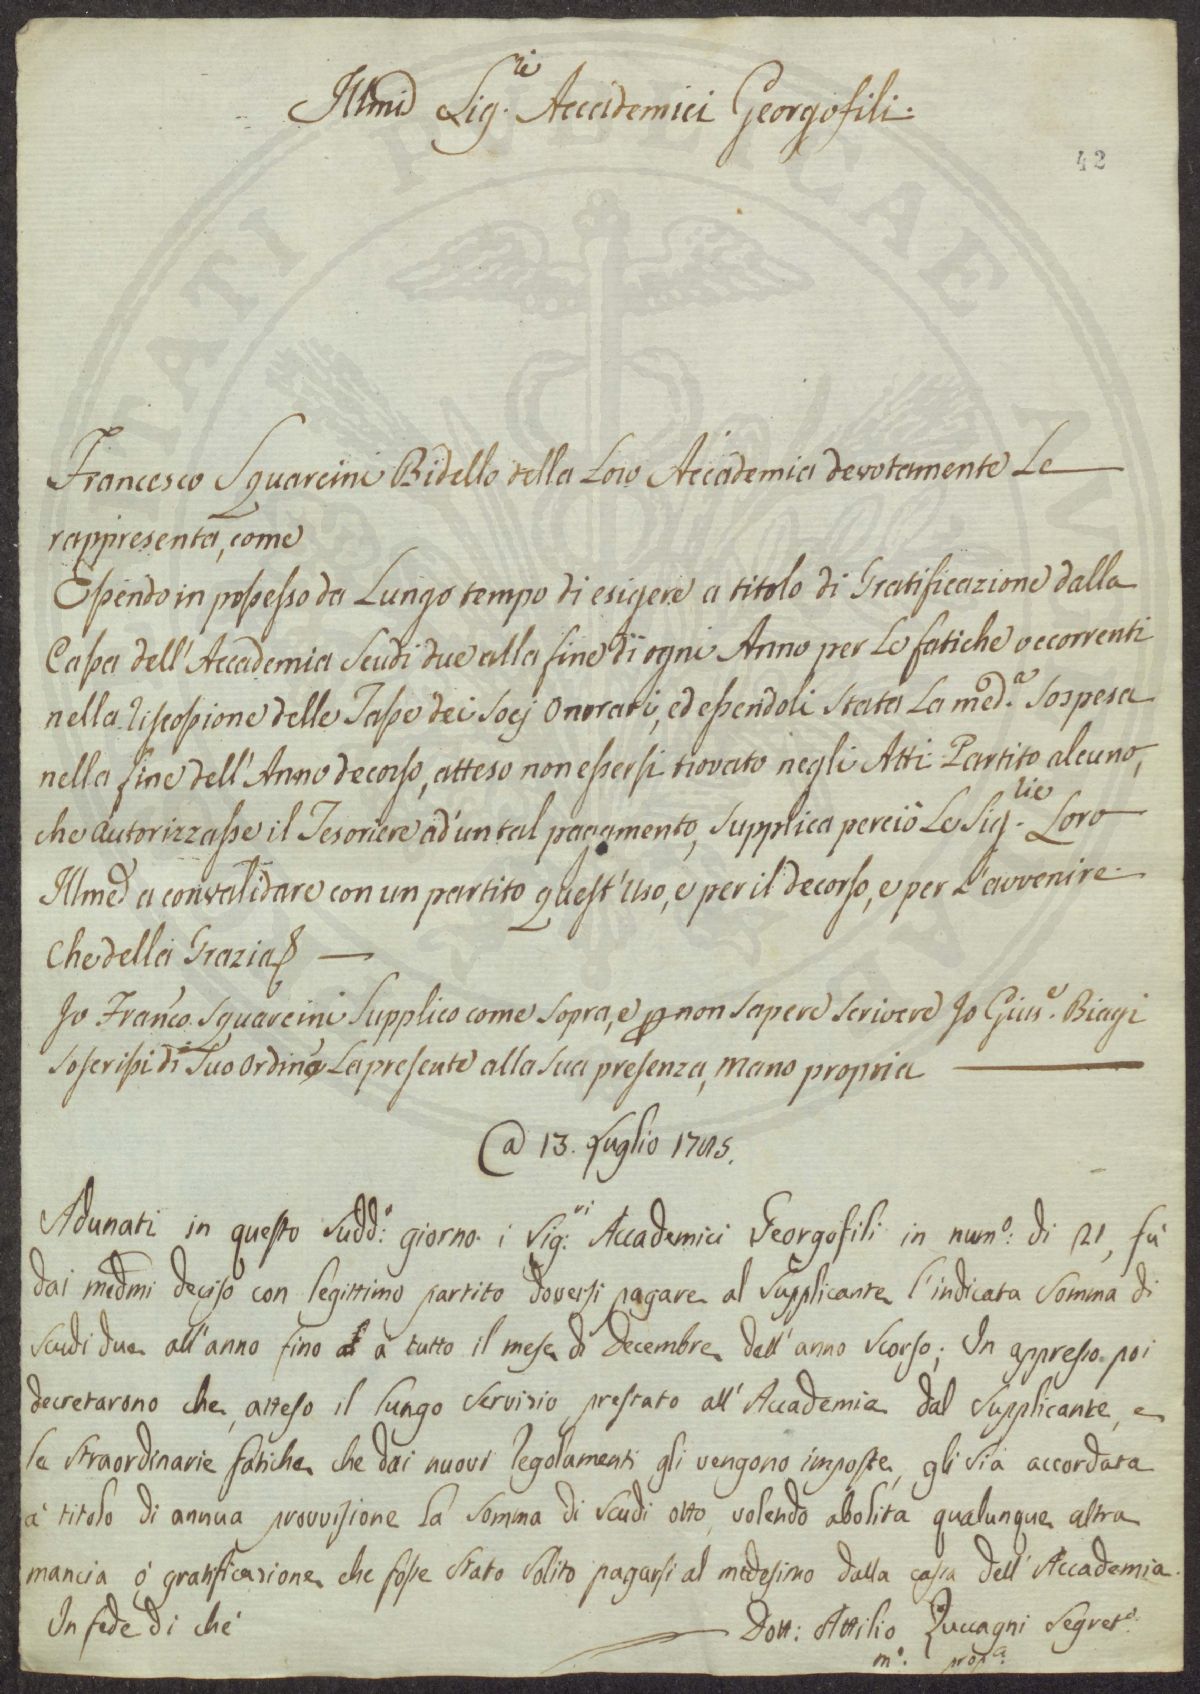 Illmi Sig.ri Accademici Georgofili.
42
Francesco Sguarcini Bidello della Loro Accademia devotamente Le
rappresenta, come
Essendo in possesso da Lungo tempo di esigere a titolo di Gratificazione dalla
Cassa dell'Accademia Scudi due alla fine di ogni Anno per Le fatiche occorrenti
nella riscossione delle Tasse dei Socj Onorari, ed essendoli stata La med.a Sospesa
nella fine dell'Anno decorso, atteso non essersi trovato negli Atti Partito alcuno,
che autorizzasse il Tesoriere ad'un tal pagamento, Supplica perciò Le Sig.rie Loro
Illme a convalidare con un partito quest'Uso, e per il decorso, e per L'avvenire.
Che della Grazia
Jo Franco Sguarcini Supplico come sopra, e p non sapere scrivere Jo Gius.e Biagi
soscrissi di Suo ordine La presente alla Sua presenza, mano propria
A 13. Luglio 1785.
Adunati in questo sudd.o giorno i Sig.ri Accademici Georgofili in num.o di 21, fu
dai medmi deciso con legittimo partito doversi pagare al Supplicante l'indicata somma di
scudi due all'anno fino a tutto il mese di Decembre dell'anno scorso; In appresso poi
decretarono che, atteso il lungo servizio prestato all'Accademia dal Supplicante, e
le straordinarie fatiche che dai nuovi regolamenti gli vengono imposte, gli sia accordata
a' titolo di annua provvisione la somma di scudi otto, volendo abolita qualunque altra
mancia o' gratificazione che fosse stato solito pagarsi al medesimo dalla cassa dell'Accademia.
In fede di che
Dott: Attilio Zuccagni Segret.o
m.o prop.a